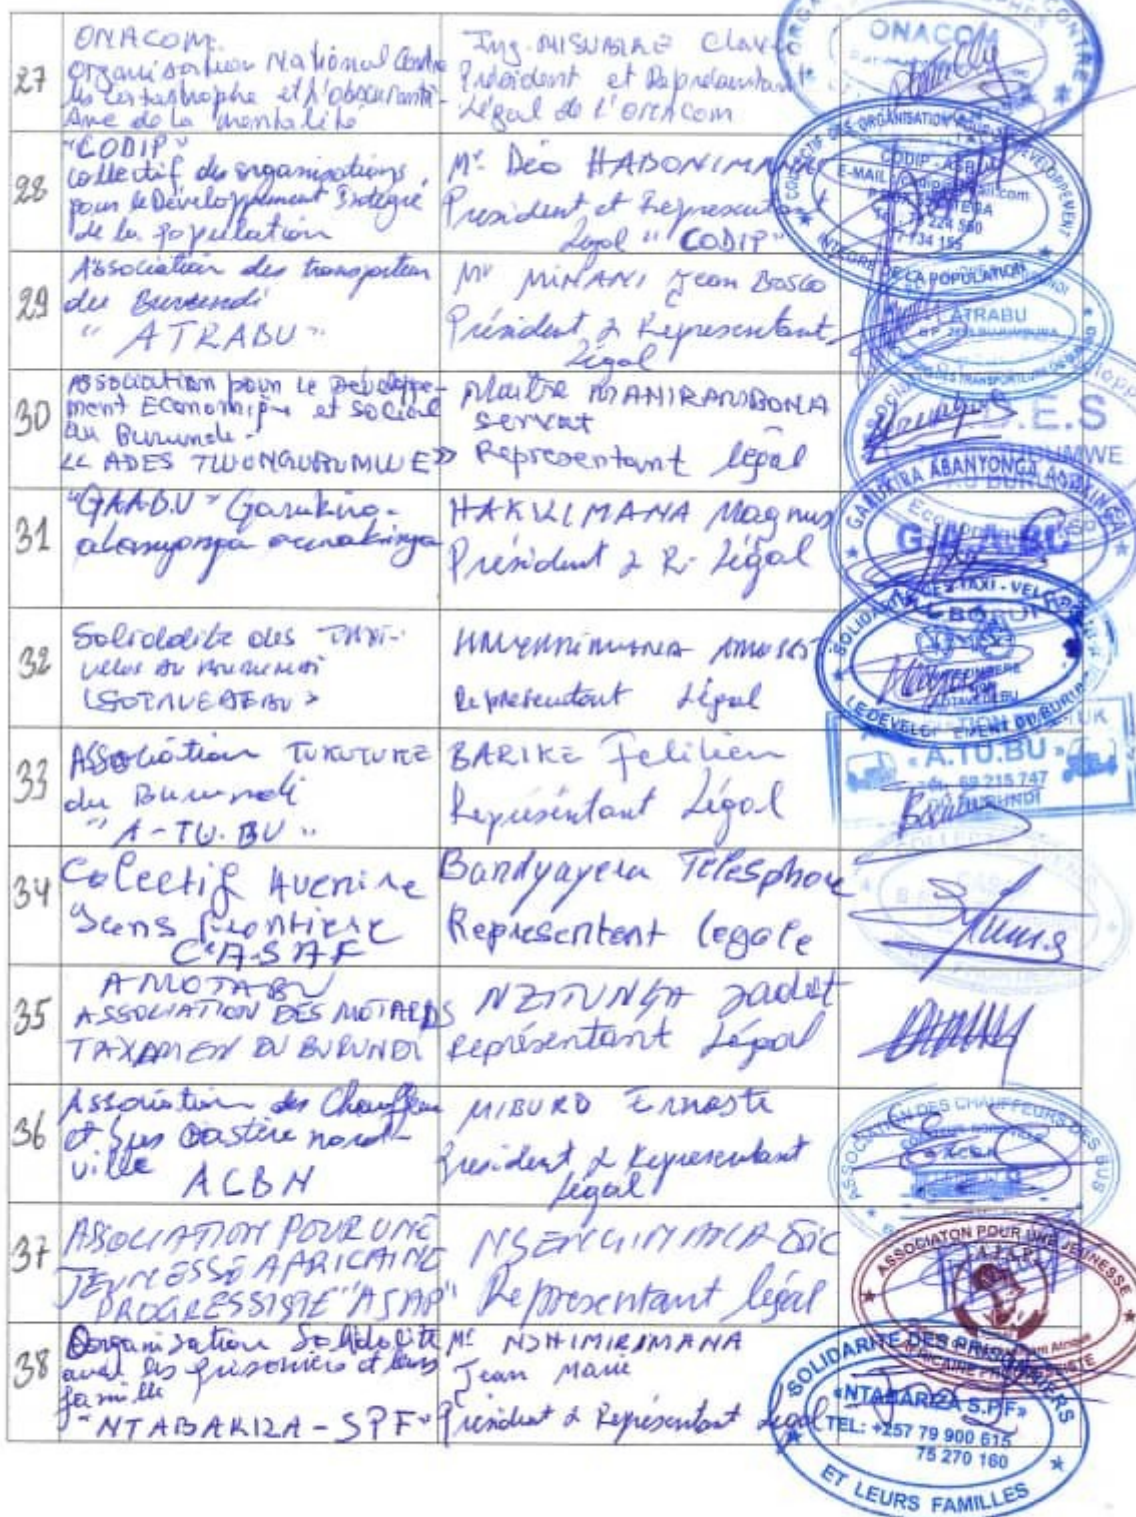 27
ONACOM
Organisation National Contre
les catastrophe et l'obscuranti-
sme de la mentalité
Ing. Clav
Président et Représentant
Légal de l'ONACOM
ONACOM
28
"CODIP"
collectif des organisations
pour le Développement Intégré
de la population
Mr Déo HABONIMANA
President et Representant
Legal "CODIP"
COLLECTIF DES ORGANISATION POUR LE DEVELOPPEMENT
CODIP - ASBL
E-MAIL:
INTEGRE DE LA POPULATION
29
Association des transporteurs
du Burundi
"ATRABU"
Mr MINANI Jean Bosco
Président & Representant
Légal
ATRABU
30
Association pour le Developpe-
ment Economique et social
au Burundi -
<< ADES TWUNGURUMWE >>
Maître MANIRAMBONA
servat
Representant légal
D.E.S
31
"GAABU" Garukira
abanyonga amakinga
HAKIZIMANA Magnus
Président & R. Légal
GARUKIRA ABANYONGA AMAKINGA
32
Solidalité des TAXI-
vélos du BURUNDI
Représentant Légal
SOLIDARITE DES TAXI - VELOS
LE DEVELOPPEMENT DU BURUNDI
33
Association TUKUTUKE
du Burundi
"A-TU.BU"
BARIKE Felilien
Représentant Légal
« A.TU.BU »
69 215 747
BURUNDI
34
Colectif Avenire
Sans Frontiere
C.A.S.A.F
Bandyayera Télésphore
Représentent légale
35
AMOTABU
ASSOCIATION DES MOTARDS
TAXAMEN DU BURUNDI
NZITUNGA Jadot
représentant Légal
36
Association des Chauffeur
et bus nord-
ville
ACBN
MIBURO Ernaste
président & Representant
légal
ASSOCIATION DES CHAUFFEURS DES BUS
37
ASSOCIATION POUR UNE
JEUNESSE AFRICAINE
PROGRESSISTE "AJAP"
Representant légal
ASSOCIATON POUR UNE JEUNESSE
A.J.A.P
AFRICAINE PROGRESSISTE
38
Organisation Solidalité
avec les prisonniers et leurs
famille
"NTABARIZA - SPF"
Mr NSHIMIRIMANA
Jean Marie
Président & Représentant Legal
SOLIDARITE DES PRISONNIERS
«NTABARIZA S.P.F»
TEL: +257 79 900 615
75 270 160
ET LEURS FAMILLES